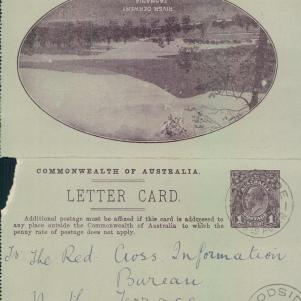 RIVER DERWENT
TASMANIA
COMMONWEALTH OF AUSTRALIA.
LETTER CARD.
Additional postage must be affixed if this card is addressed to
any place outside the Commonwealth of Australia to which the
penny rate of postage does not apply.
To The Red Cross Information
Bureau
North Terrace